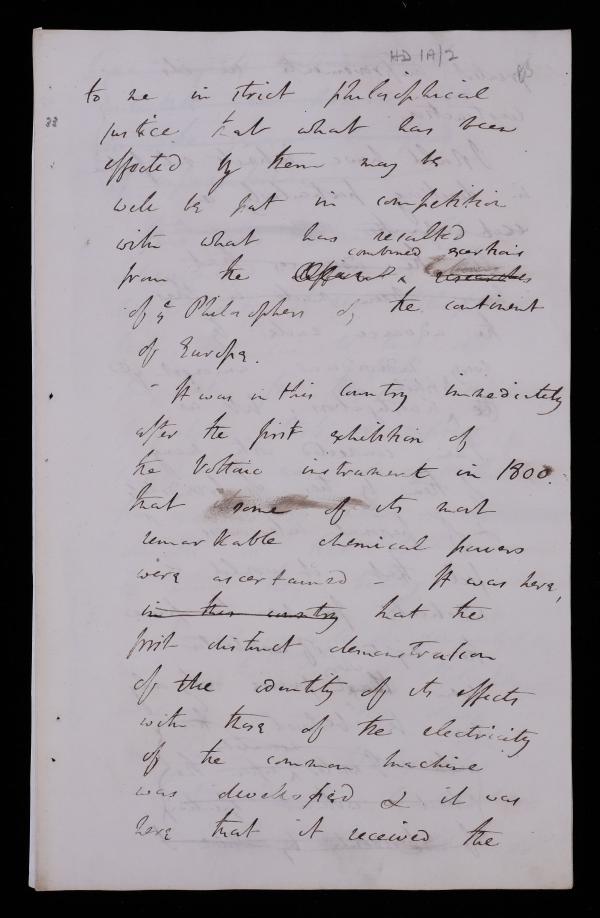 HD 1A/2
to me in strict philosophical
justice that what has been
effected by them may be
well be put in competition
with what has resulted
combined exertions
from the
of ye Philosophers of the continent
of Europe.
- It was in this country immediately
after the first exhibition of
the Voltaic instrument in 1800.
that some of its most
remarkable chemical powers
were ascertained - It was here,
in this country that the
first distinct demonstration
of the identity of its effects
with those of the electricity
of the common machine
was developed & it was
here that it received the